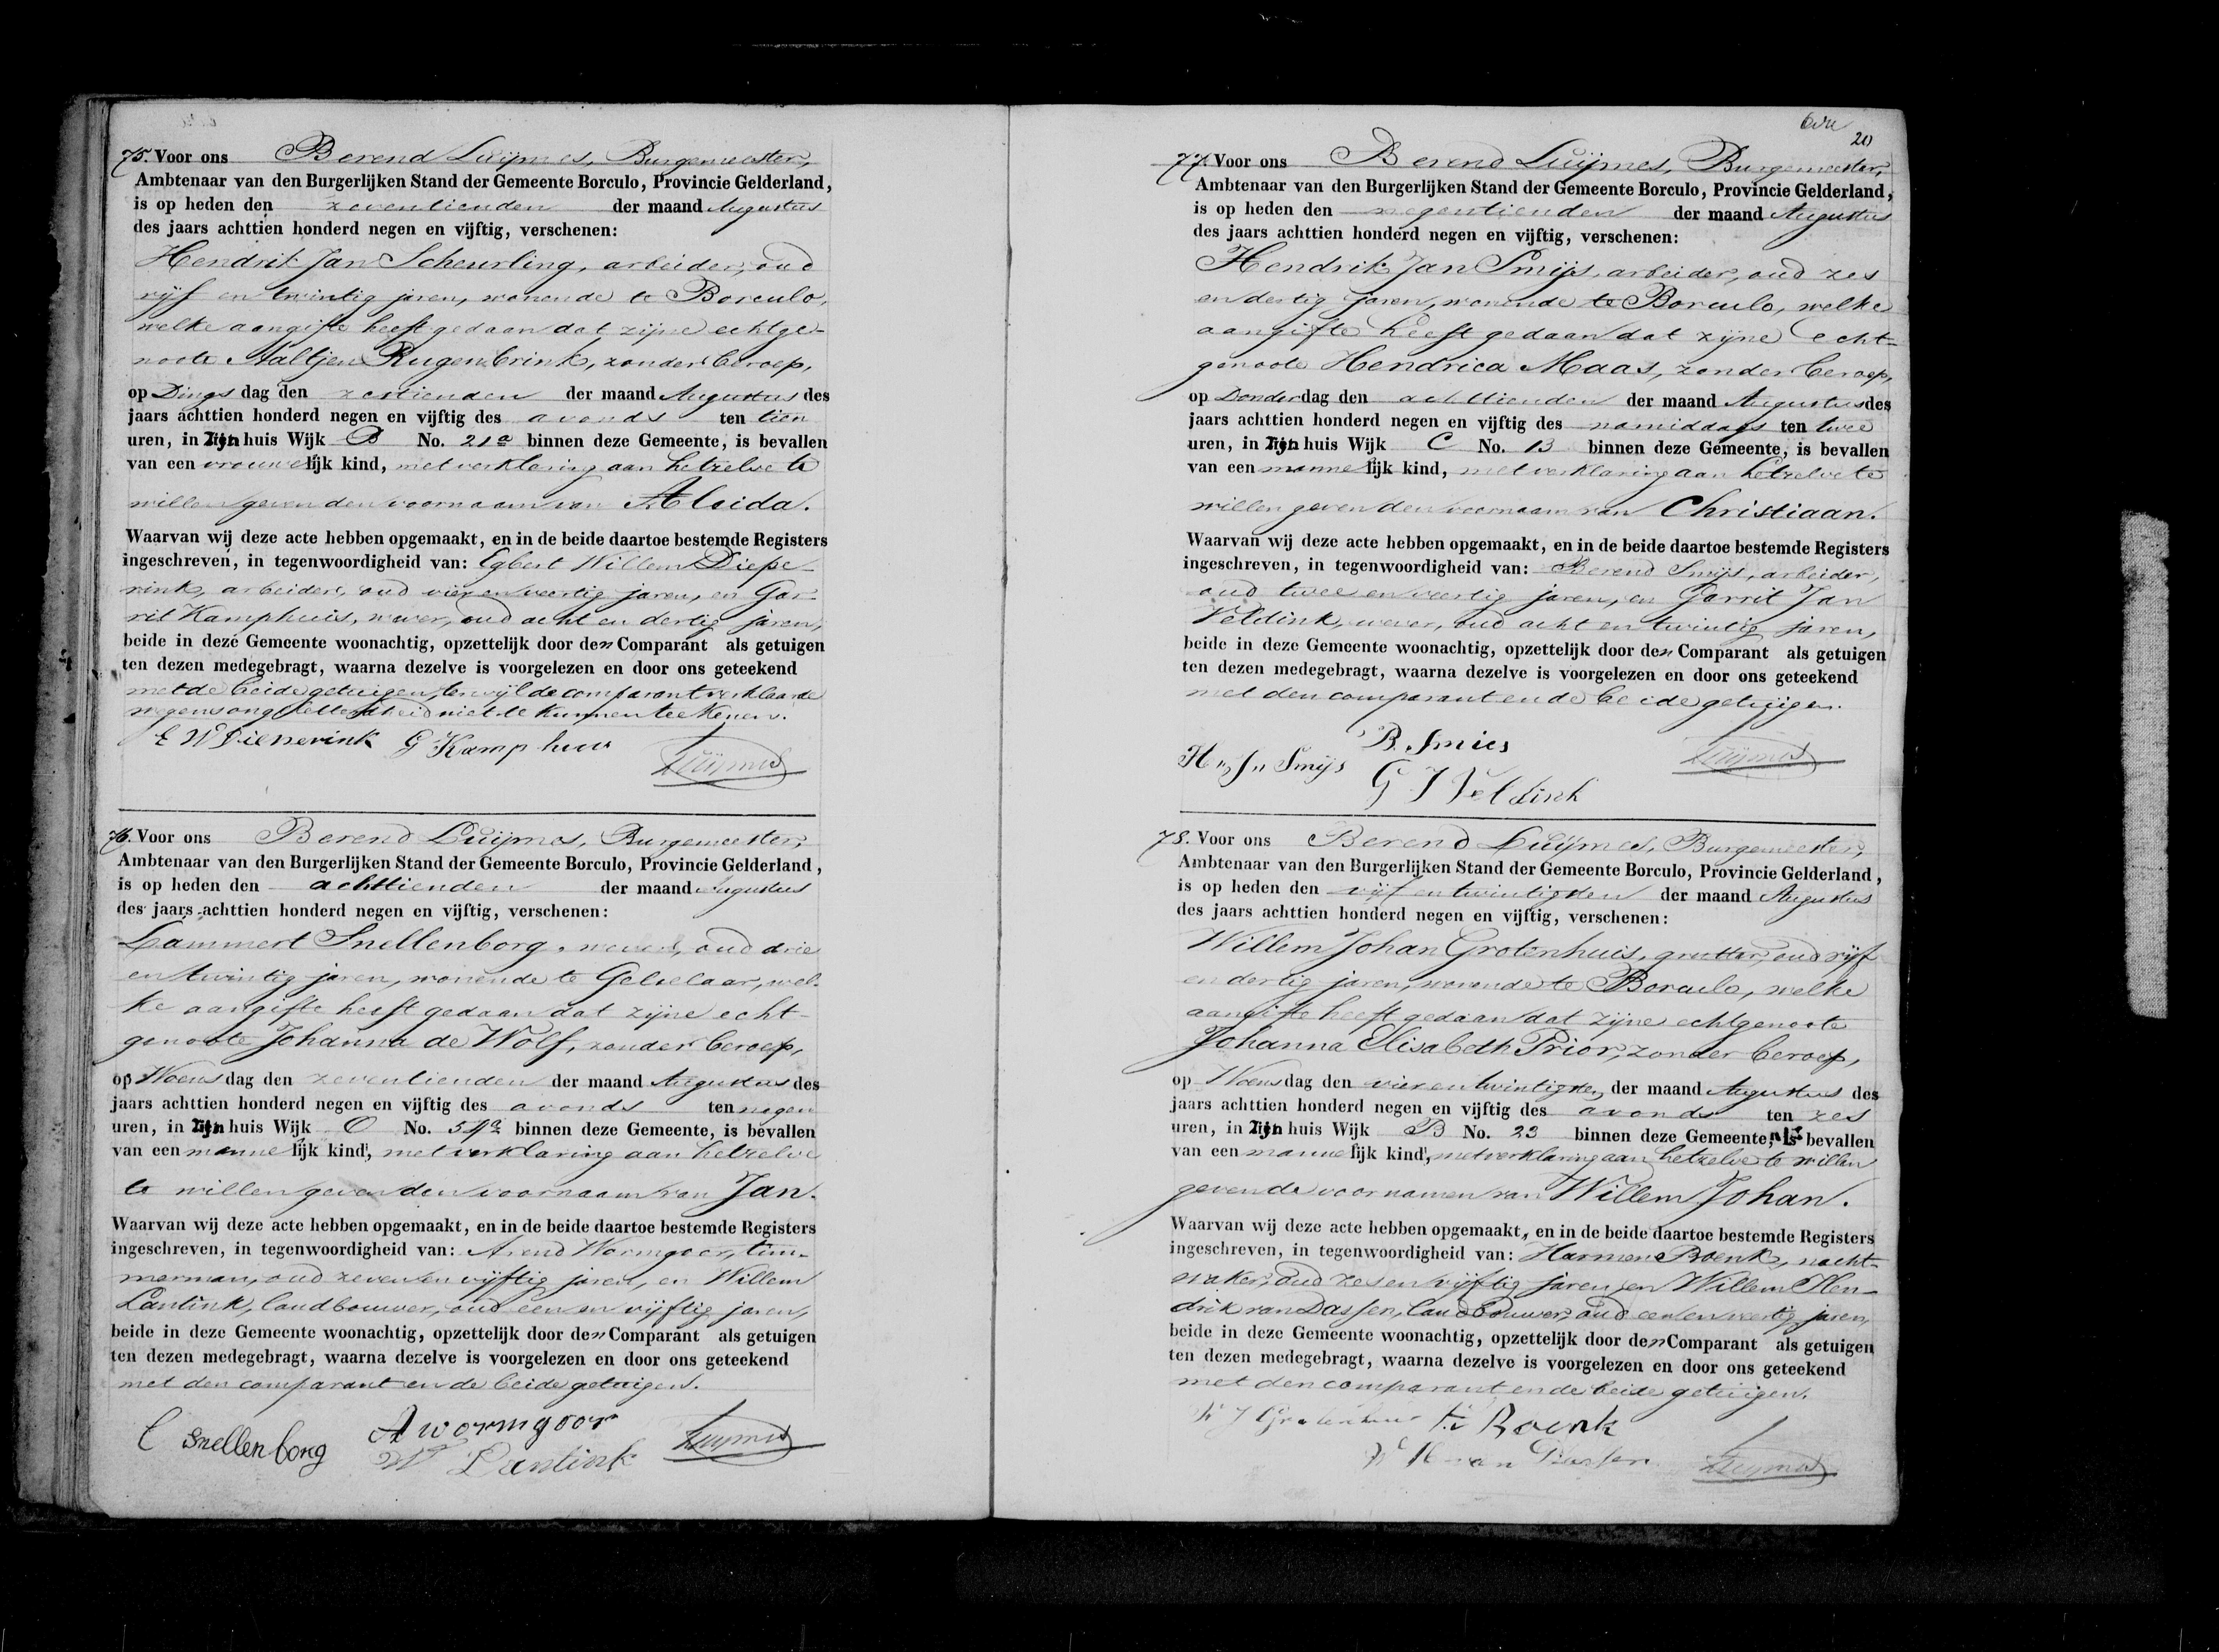 75. Voor ons Berend Luijmes, Burgemeester,
Ambtenaar van den Burgerlijken Stand der Gemeente Borculo, Provincie Gelderland,
is op heden den zeventienden der maand Augustus
des jaars achttien honderd negen en vijftig, verschenen:
Hendrik Jan Scheurling, arbeider, oud
vijf en twintig jaren, wonende te Borculo,
welke aangifte heeft gedaan dat zijne echtge-
noote Aaltjen Rugenbrink, zonder beroep,
op Dingsdag den zestienden der maand Augustus des
jaars achttien honderd negen en vijftig des avonds ten tien
uren, in zijn huis Wijk B No. 21a binnen deze Gemeente, is bevallen
van een vrouwelijk kind, met verklaring aan hetzelve te
willen geven den voornaam van Aleida.
Waarvan wij deze acte hebben opgemaakt, en in de beide daartoe bestemde Registers
ingeschreven, in tegenwoordigheid van: Egbert Willem Diepe-
rink, arbeider, oud vier en veertig jaren, en Gar-
rit Kamphuis, wever, oud acht en dertig jaren,
beide in deze Gemeente woonachtig, opzettelijk door den Comparant als getuigen
ten dezen medegebragt, waarna dezelve is voorgelezen en door ons geteekend
met de beide getuigen, terwijl de comparant verklaarde
wegens ongeletterdheid niet te kunnen teekenen.
E W Dieperink G Kamphuis
Luijmes
76. Voor ons Berend Luijmes, Burgemeester,
Ambtenaar van den Burgerlijken Stand der Gemeente Borculo, Provincie Gelderland,
is op heden den achttienden der maand Augustus
des jaars achttien honderd negen en vijftig, verschenen:
Lammert Snellenborg, wever, oud drie
en twintig jaren, wonende te Gelselaar, wel-
ke aangifte heeft gedaan dat zijne echt-
genoote Johanna de Wolf, zonder beroep,
op Woensdag den zeventienden der maand Augustus des
jaars achttien honderd negen en vijftig des avonds ten negen
uren, in zijn huis Wijk O No. 54a binnen deze Gemeente, is bevallen
van een mannelijk kind, met verklaring aan hetzelve
te willen geven den voornaam van Jan.
Waarvan wij deze acte hebben opgemaakt, en in de beide daartoe bestemde Registers
ingeschreven, in tegenwoordigheid van: Arend Wormgoor, tim-
merman, oud zeven en vijftig jaren, en Willem
Lantink, landbouwer, oud een en vijftig jaren,
beide in deze Gemeente woonachtig, opzettelijk door den Comparant als getuigen
ten dezen medegebragt, waarna dezelve is voorgelezen en door ons geteekend
met den comparant en de beide getuigen.
L Snellenborg A Wormgoor
W Lantink Luijmes
20
77. Voor ons Berend Luijmes, Burgemeester,
Ambtenaar van den Burgerlijken Stand der Gemeente Borculo, Provincie Gelderland,
is op heden den negentienden der maand Augustus
des jaars achttien honderd negen en vijftig, verschenen:
Hendrik Jan Smijs, arbeider, oud zes
en dertig jaren, wonende te Borculo, welke
aangifte heeft gedaan dat zijne echt-
genoote Hendrica Maas, zonder beroep,
op Donderdag den achttienden der maand Augustus des
jaars achttien honderd negen en vijftig des namiddags ten twee
uren, in zijn huis Wijk C No. 13 binnen deze Gemeente, is bevallen
van een mannelijk kind, met verklaring aan hetzelve te
willen geven den voornaam van Christiaan.
Waarvan wij deze acte hebben opgemaakt, en in de beide daartoe bestemde Registers
ingeschreven, in tegenwoordigheid van: Berend Smijs, arbeider,
oud twee en veertig jaren, en Garrit Jan
Veldink, wever, oud acht en twintig jaren,
beide in deze Gemeente woonachtig, opzettelijk door den Comparant als getuigen
ten dezen medegebragt, waarna dezelve is voorgelezen en door ons geteekend
met den comparant en de beide getuigen.
B. Smies
H„ J„ Smijs Luijmes
G J Veldink
78. Voor ons Berend Luijmes, Burgemeester,
Ambtenaar van den Burgerlijken Stand der Gemeente Borculo, Provincie Gelderland,
is op heden den vijf en twintigsten der maand Augustus
des jaars achttien honderd negen en vijftig, verschenen:
Willem Johan Grotenhuis, grutter, oud vijf
en dertig jaren, wonende te Borculo, welke
aangifte heeft gedaan dat zijne echtgenoote
Johanna Elisabeth Prior, zonder beroep,
op Woensdag den vier en twintigsten der maand Augustus des
jaars achttien honderd negen en vijftig des avonds ten zes
uren, in zijn huis Wijk B No. 23 binnen deze Gemeente, is bevallen
van een mannelijk kind, met verklaring aan hetzelve te willen
geven de voornamen van Willem Johan.
Waarvan wij deze acte hebben opgemaakt, en in de beide daartoe bestemde Registers
ingeschreven, in tegenwoordigheid van: Harmen Roenk, nacht-
waker, oud zes en vijftig jaren, en Willem Hen-
drik van Dassen, landbouwer, oud een en veertig jaren,
beide in deze Gemeente woonachtig, opzettelijk door den Comparant als getuigen
ten dezen medegebragt, waarna dezelve is voorgelezen en door ons geteekend
met den comparant en de beide getuigen.
W J Grotenhuis H Roenk
W H van Dassen Luijmes